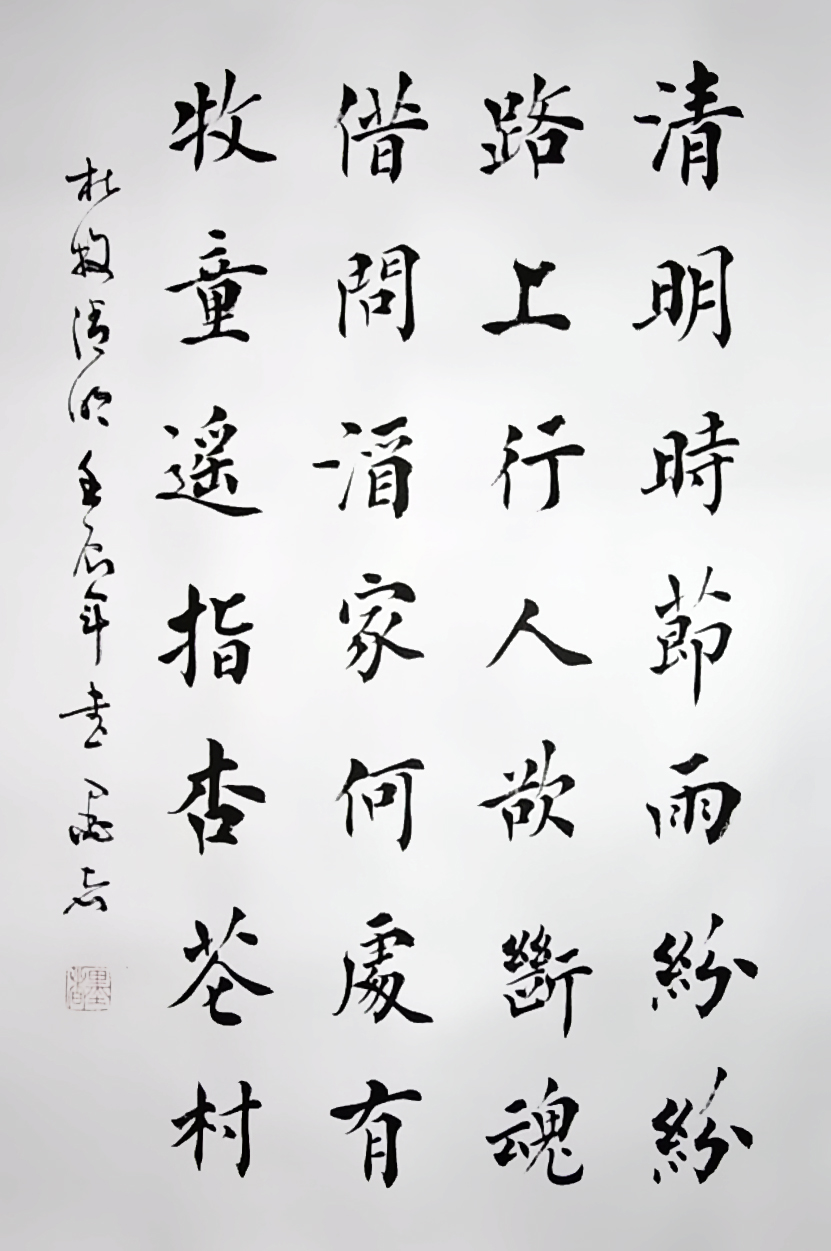 清明時節雨紛紛
路上行人欲斷魂
借問酒家何處有
牧童遥指杏花村
杜牧清明壬辰年書墨